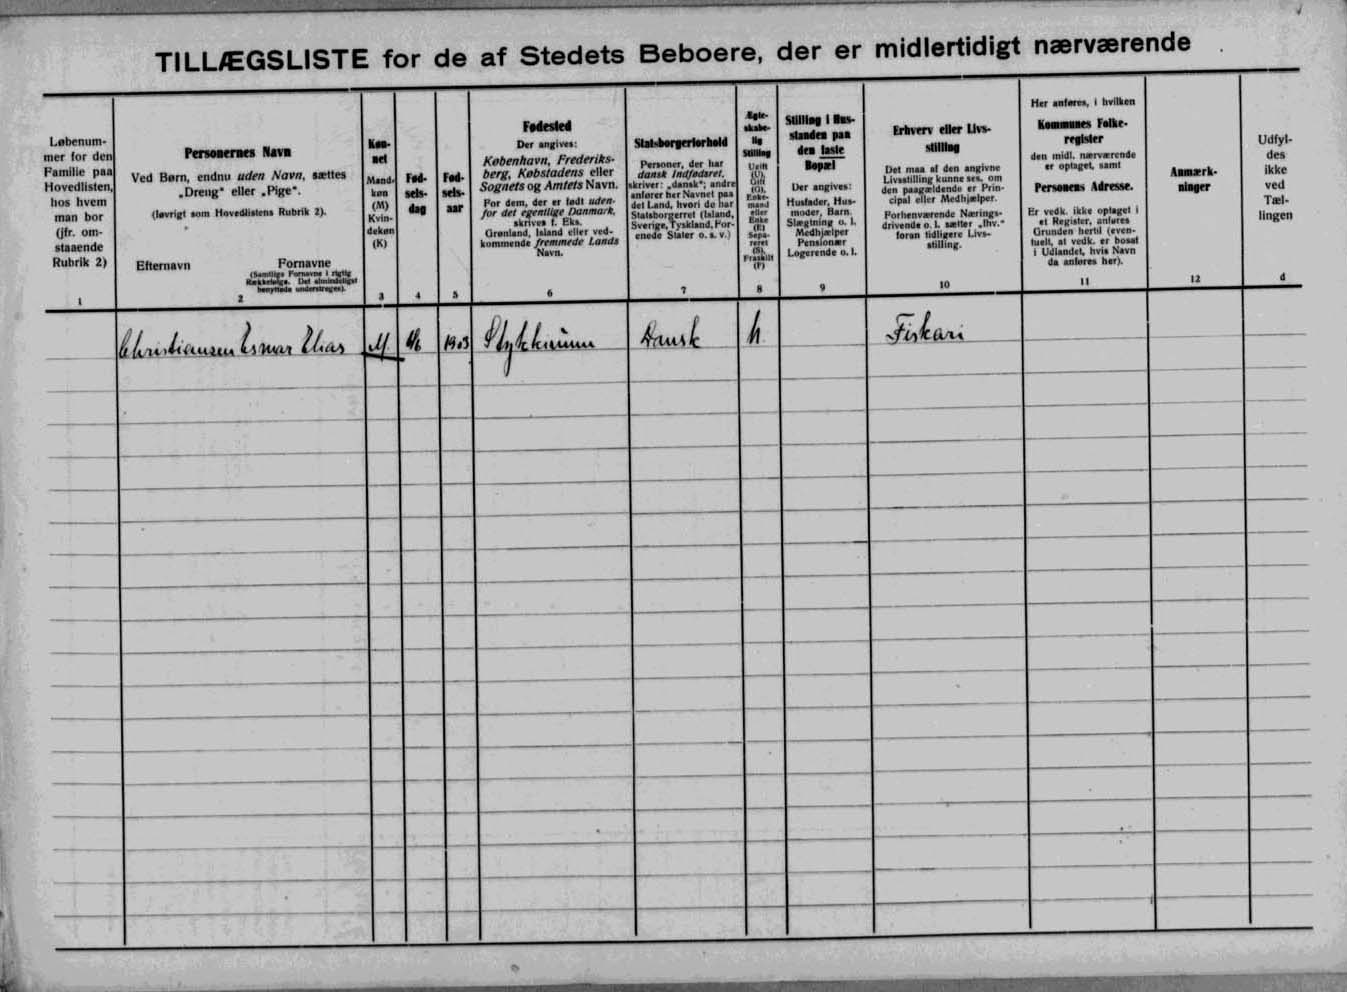 TILLÆGSLISTE for de af Stedets Beboere, der er midlertidigt nærværende
Løbenum-
mer for den
Familie paa
Hovedlisten,
hos hvem
man bor
(jfr. om-
staaende
Rubrik 2)
1
Personernes Navn
Ved Børn, endnu uden Navn, sættes
„Dreng“ eller „Pige“.
(Iøvrigt som Hovedlistens Rubrik 2).
Efternavn
Fornavne
(Samtlige Fornavne i rigtig
Rækkefølge. Det almindeligst
benyttede understreges).
2
Køn-
net
Mand-
køn
(M)
Kvin-
dekøn
(K)
3
Fød-
sels-
dag
4
Fød-
sels-
aar
5
Fødested
Der angives:
København, Frederiks-
berg, Købstadens eller
Sognets og Amtets Navn.
For dem, der er født uden-
for det egentlige Danmark,
skrives f. Eks.
Grønland, Island eller ved-
kommende fremmede Lands
Navn.
6
Statsborgerforhold
Personer, der har
dansk Indfødsret,
skriver: „dansk“; andre
anfører her Navnet paa
det Land, hvori de har
Statsborgerret (Island,
Sverige, Tyskland, For-
enede Stater o. s. v.)
7
Ægte-
skabe-
lig
Stilling
Ugift
(U),
Gift
(G),
Enke-
mand
eller
Enke
(E)
Sepa-
reret
(S),
Fraskilt
(F)
8
Stilling i Hus-
standen paa
den faste
Bopæl
Der angives:
Husfader, Hus-
moder, Barn,
Slægtning o. l.
Medhjælper
Pensionær
Logerende o. l.
9
Erhverv eller Livs-
stilling
Det maa af den angivne
Livsstilling kunne ses, om
den paagældende er Prin-
cipal eller Medhjælper.
Forhenværende Nærings-
drivende o. l. sætter „fhv.“
foran tidligere Livs-
stilling.
10
Her anføres, i hvilken
Kommunes Folke-
register
den midl. nærværende
er optaget, samt
Personens Adresse.
Er vedk. ikke optaget i
et Register, anføres
Grunden hertil (even-
tuelt, at vedk. er bosat
i Udlandet, hvis Navn
da anføres her).
11
Anmærk-
ninger
12
Udfyl-
des
ikke
ved
Tæl-
lingen
d
Christiansen Esmar Elias M 1903 Dansk Fiskari